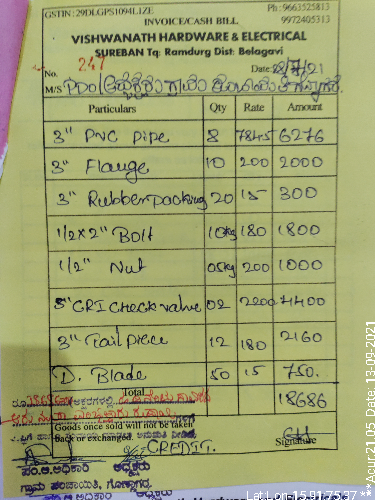 GSTIN:29DLGPS1094L1ZE Ph:9663525813
INVOICE/CASH BILL 9972405313
VISHWANATH HARDWARE & ELECTRICAL
SUREBAN Tq: Ramdurg Dist: Belagavi
No. 247 Date: 12/7/21
M/S PDO
Particulars Qty Rate Amount
3" PVC Pipe 8 784.5 6276
3" Flauge 10 200 2000
3" Rubber packing 20 15 300
1/2x2" Bolt 10kg 180 1800
1/2" Nut 05kg 200 1000
3" GRI Check valve 02 2200 4400
3" Tail piece 12 180 2160
D. Blade 50 15 750.
Total 18686
Goods once sold will not be taken
Back or exchanged.
CREDIT. Signature
ಪಂ.ಅ.ಅಧಿಕಾರಿ ಅಧ್ಯಕ್ಷರು
ಗ್ರಾಮ ಪಂಚಾಯಿತಿ,
Lat Lon:15.917537
Acur:21.05 Date:13-09-2021